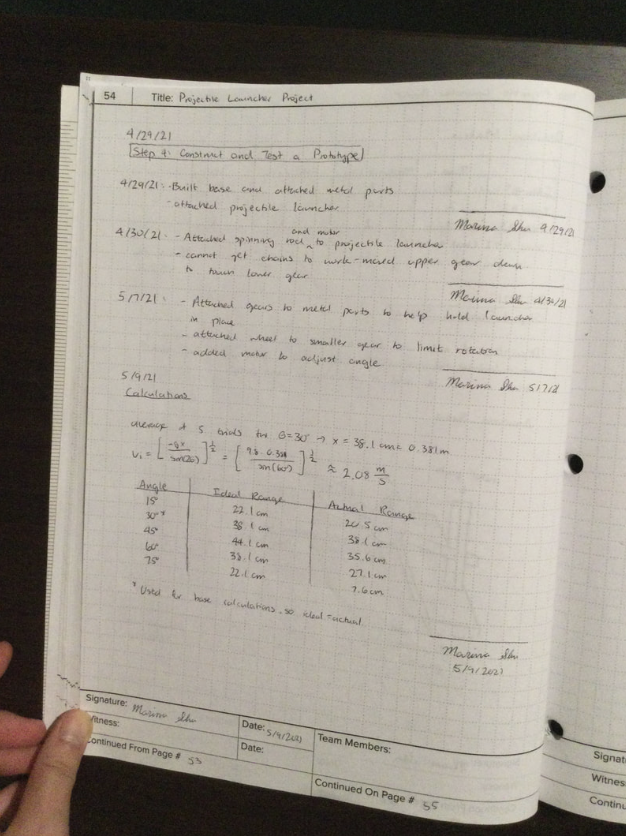 54 Title: Projectile Launcher Project
4/29/21
Step 4: Construct and Test a Prototype
4/29/21: - Built base and attached metal parts
- attached projectile launcher
Marina Shu 4/29/21
4/30/21: - Attached spinning rod and motor to projectile launcher
- cannot get chains to work - moved upper gear down
to touch lower gear
Marina Shu 4/30/21
5/7/21: - Attached gears to metal parts to help hold launcher
in place
- attached wheel to smaller gear to limit rotation
- added motor to adjust angle
Marina Shu 5/7/21
5/9/21
Calculations
average of 5 trials for θ=30° → x = 38.1 cm = 0.381m
Vi = [-gx / sin(2θ)]^1/2 = [9.8 · 0.381 / sin(60°)]^1/2 ≈ 2.08 m/s
Angle Ideal Range Actual Range
15° 22.1 cm 20.5 cm
30°* 38.1 cm 38.1 cm
45° 44.1 cm 35.6 cm
60° 38.1 cm 27.1 cm
75° 22.1 cm 7.6 cm
* Used for base calculations, so ideal = actual
Marina Shu
5/9/2021
Signature: Marina Shu Date: 5/9/2021 Team Members:
Witness: Date:
Continued From Page # 53 Continued On Page # 55
Signat
Witnes
Continu